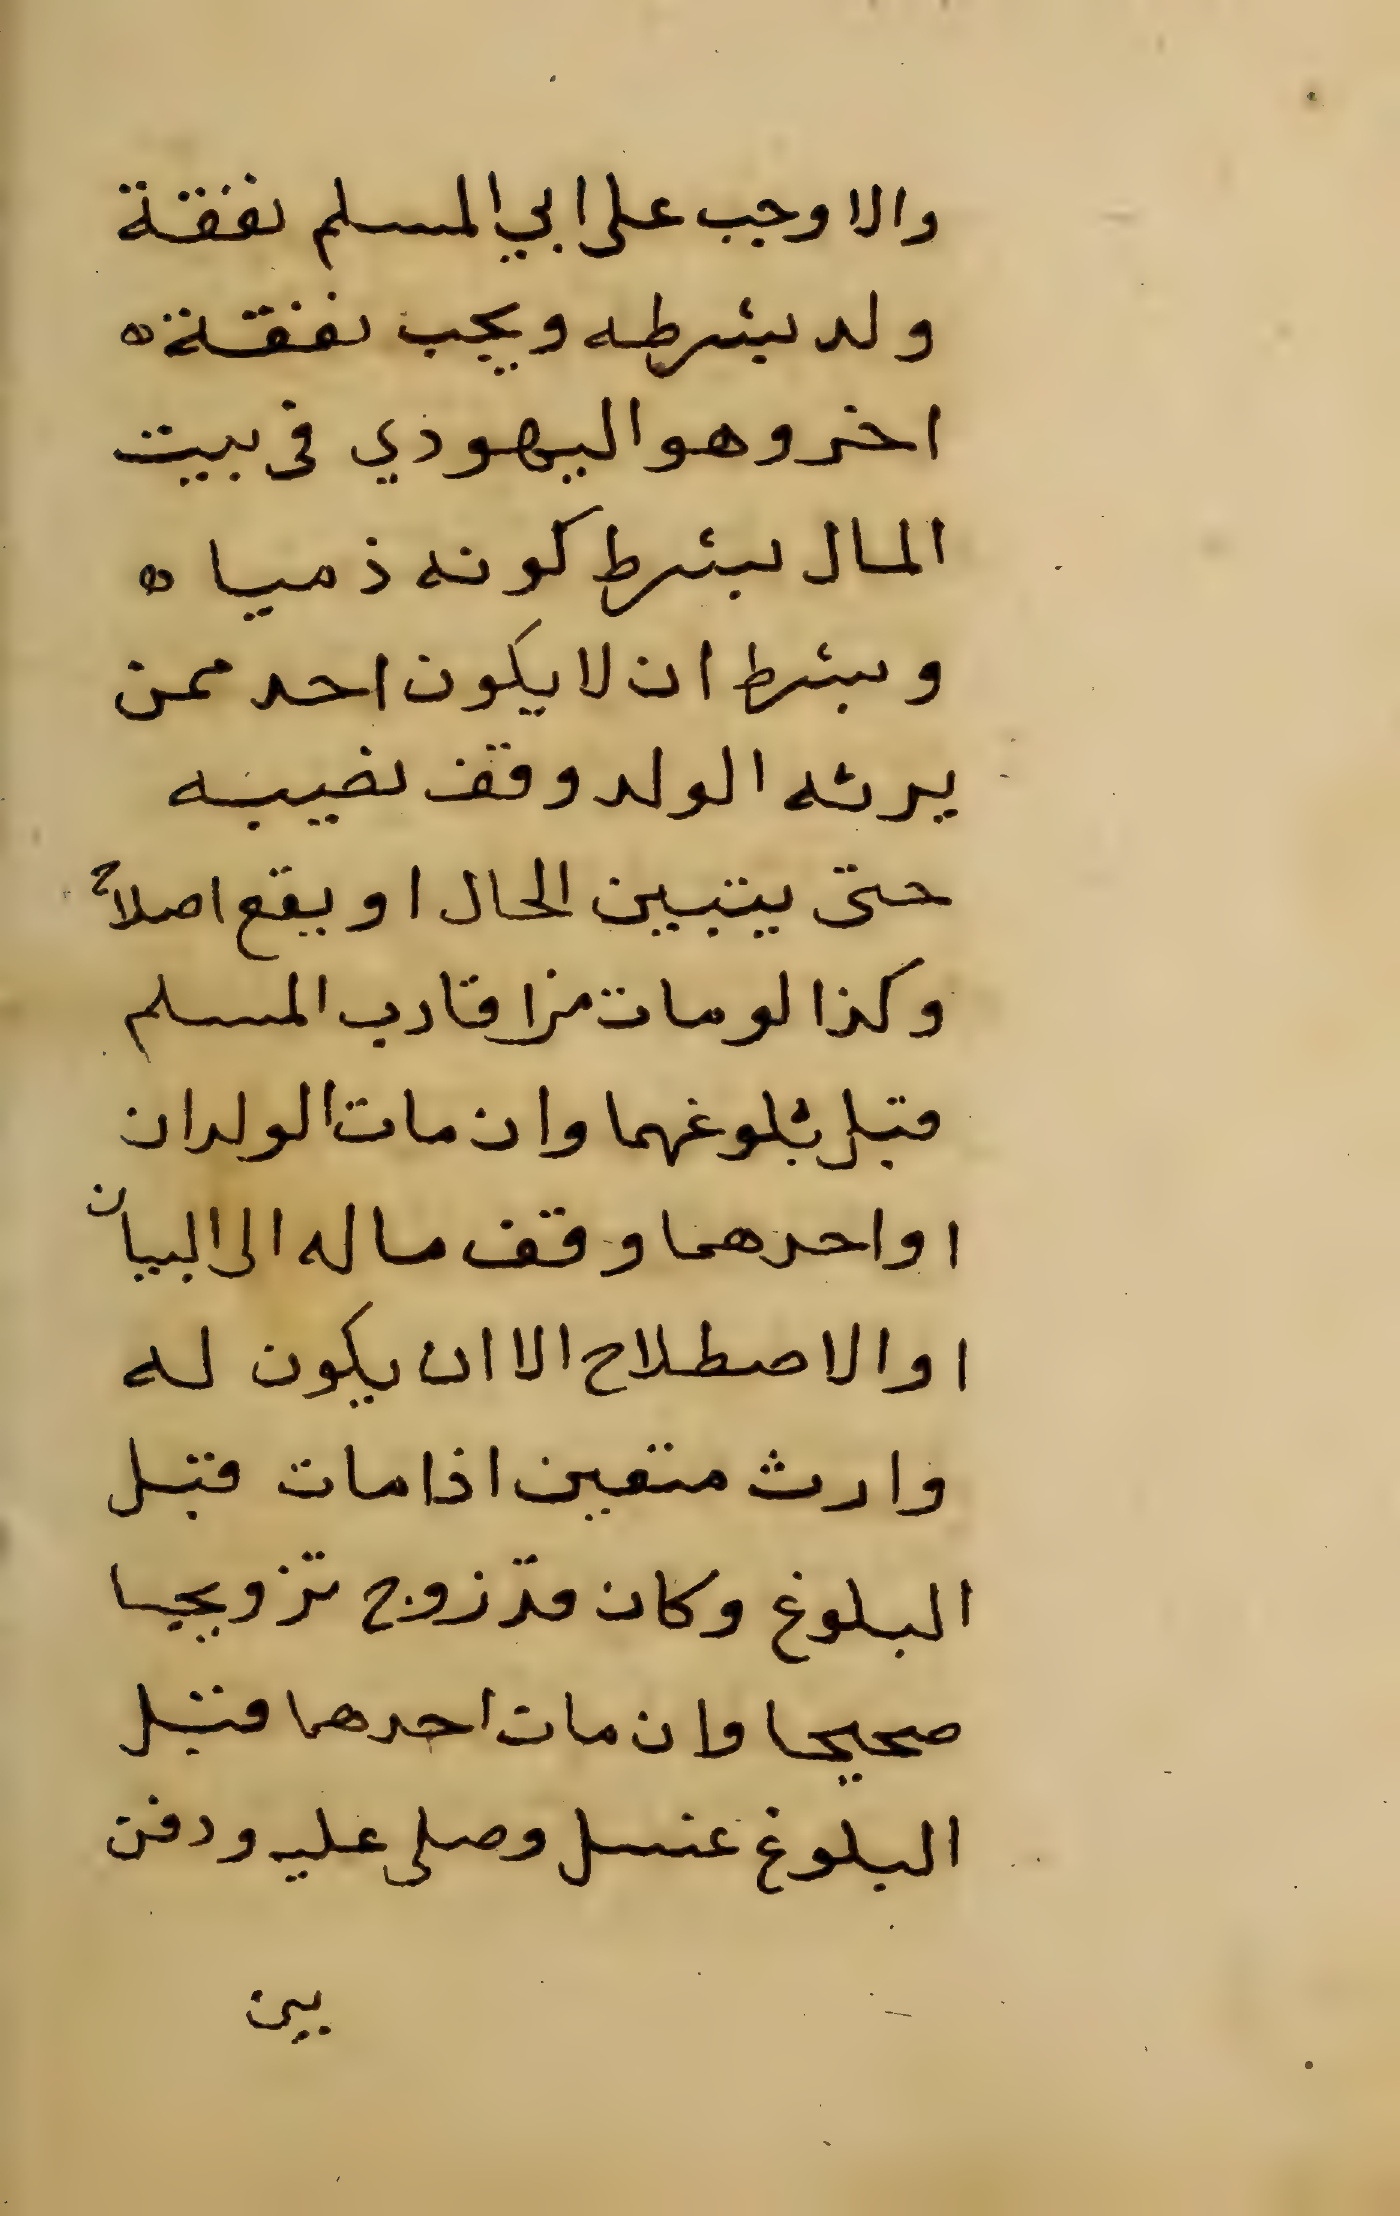 والا وجب على ابي المسلم نفقة
ولد بشرطه ويجب نفقة ه
اخر وهو اليهودي فى بيت
المال بشرط كونه ذميا ه
وبشرط ان لا يكون احد ممن
يرثه الولد وقف نصيبه
حتى يتبين الحال او يقع اصلاح
وكذا لو مات من اقارب المسلم
قبل بلوغهما وان مات الولدان
او احدهما وقف ماله الى البيان
او الاصطلاح الا ان يكون له
وارث متعين اذا مات قبل
البلوغ وكان قد زوج تزويجا
صحيحا وان مات احدهما قبل
البلوغ غسل وصلى عليه ودفن
بين